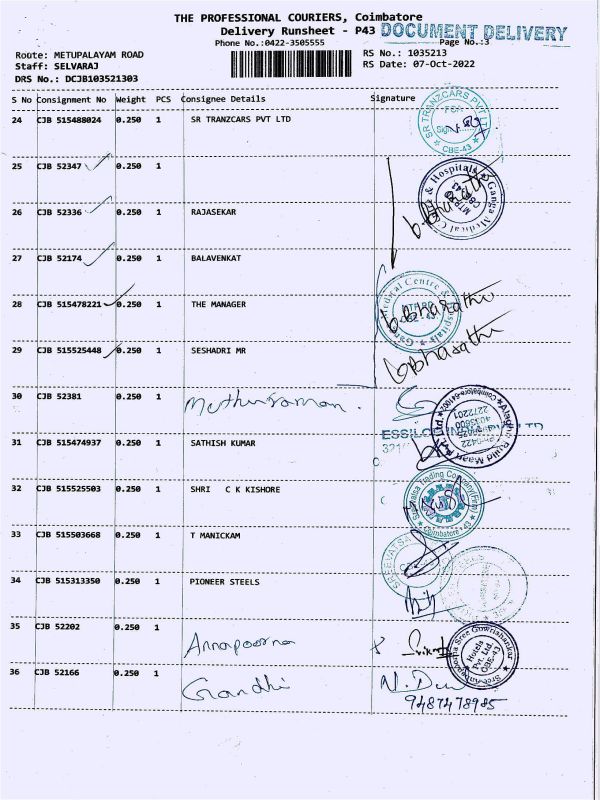 THE PROFESSIONAL COURIERS, Coimbatore
Delivery Runsheet - P43 DOCUMENT DELIVERY
Phone No.:0422-3505555 Page No.:3
Route: METUPALAYAM ROAD RS No.: 1035213
Staff: SELVARAJ RS Date: 07-Oct-2022
DRS No.: DCJB103521303
S No Consignment No Weight PCS Consignee Details Signature
24 CJB 515488024 0.250 1 SR TRANZCARS PVT LTD
SR TRANZCARS PVT LTD
CBE-43
25 CJB 52347 0.250 1
& Hospitals Ganga Medical
26 CJB 52336 0.250 1 RAJASEKAR
27 CJB 52174 0.250 1 BALAVENKAT
28 CJB 515478221 0.250 1 THE MANAGER
Medical Centre & Hospitals
b.bharathi
29 CJB 515525448 0.250 1 SESHADRI MR
b.bharathi
30 CJB 52381 0.250 1 Muthuraman.
31 CJB 515474937 0.250 1 SATHISH KUMAR
ESSILOR
2272201
32 CJB 515525503 0.250 1 SHRI C K KISHORE
Trading Company
Coimbatore-43
33 CJB 515503668 0.250 1 T MANICKAM
34 CJB 515313350 0.250 1 PIONEER STEELS
35 CJB 52202 0.250 1 Annapoorna
Sree Annapoorna Sree Gowrishankar
Hotels Pvt. Ltd.
CBE-43
36 CJB 52166 0.250 1 Gandhi
9487478985